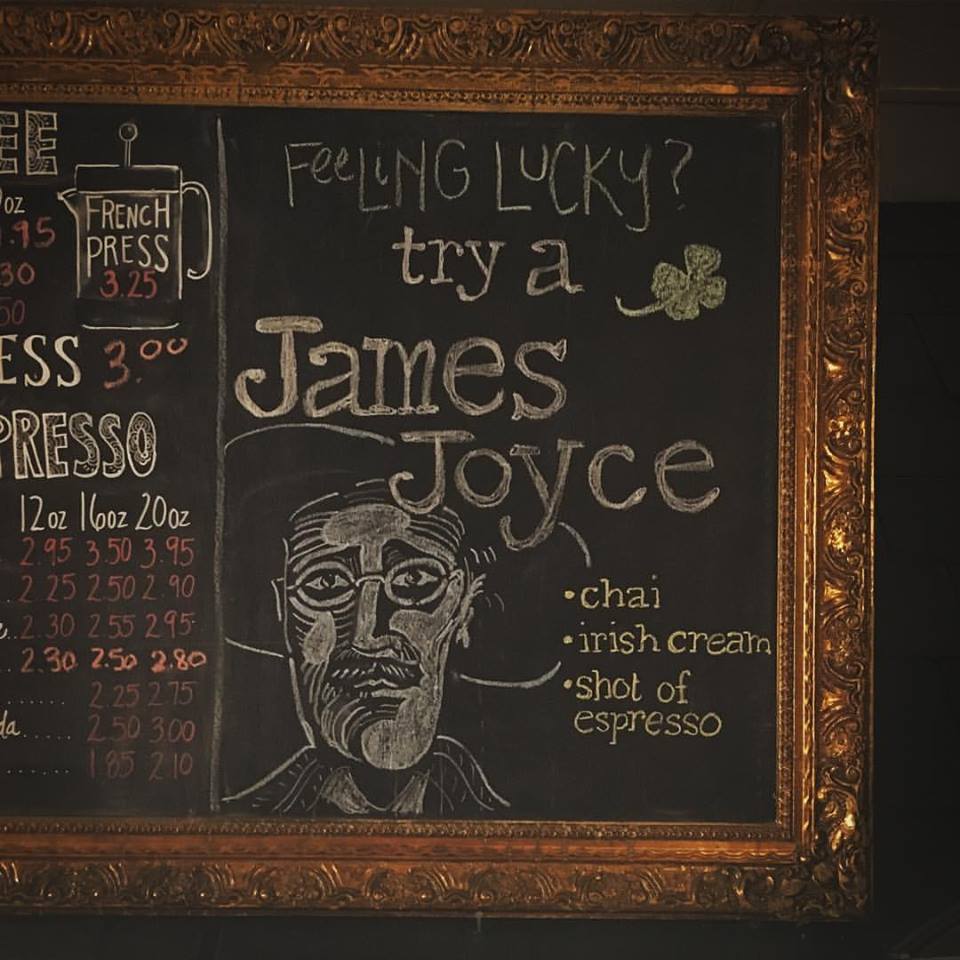 FRENCH
PRESS
3.25
30
50
3.00
12oz 16oz 20oz
2.95 3.50 3.95
2.25 2.50 2.90
2.30 2.55 2.95
2.30 2.50 2.80
2.25 2.75
2.50 3.00
1.85 2.10
FeeLiNG LUCKY?
try a
James
Joyce
•chai
•irish cream
•shot of
espresso